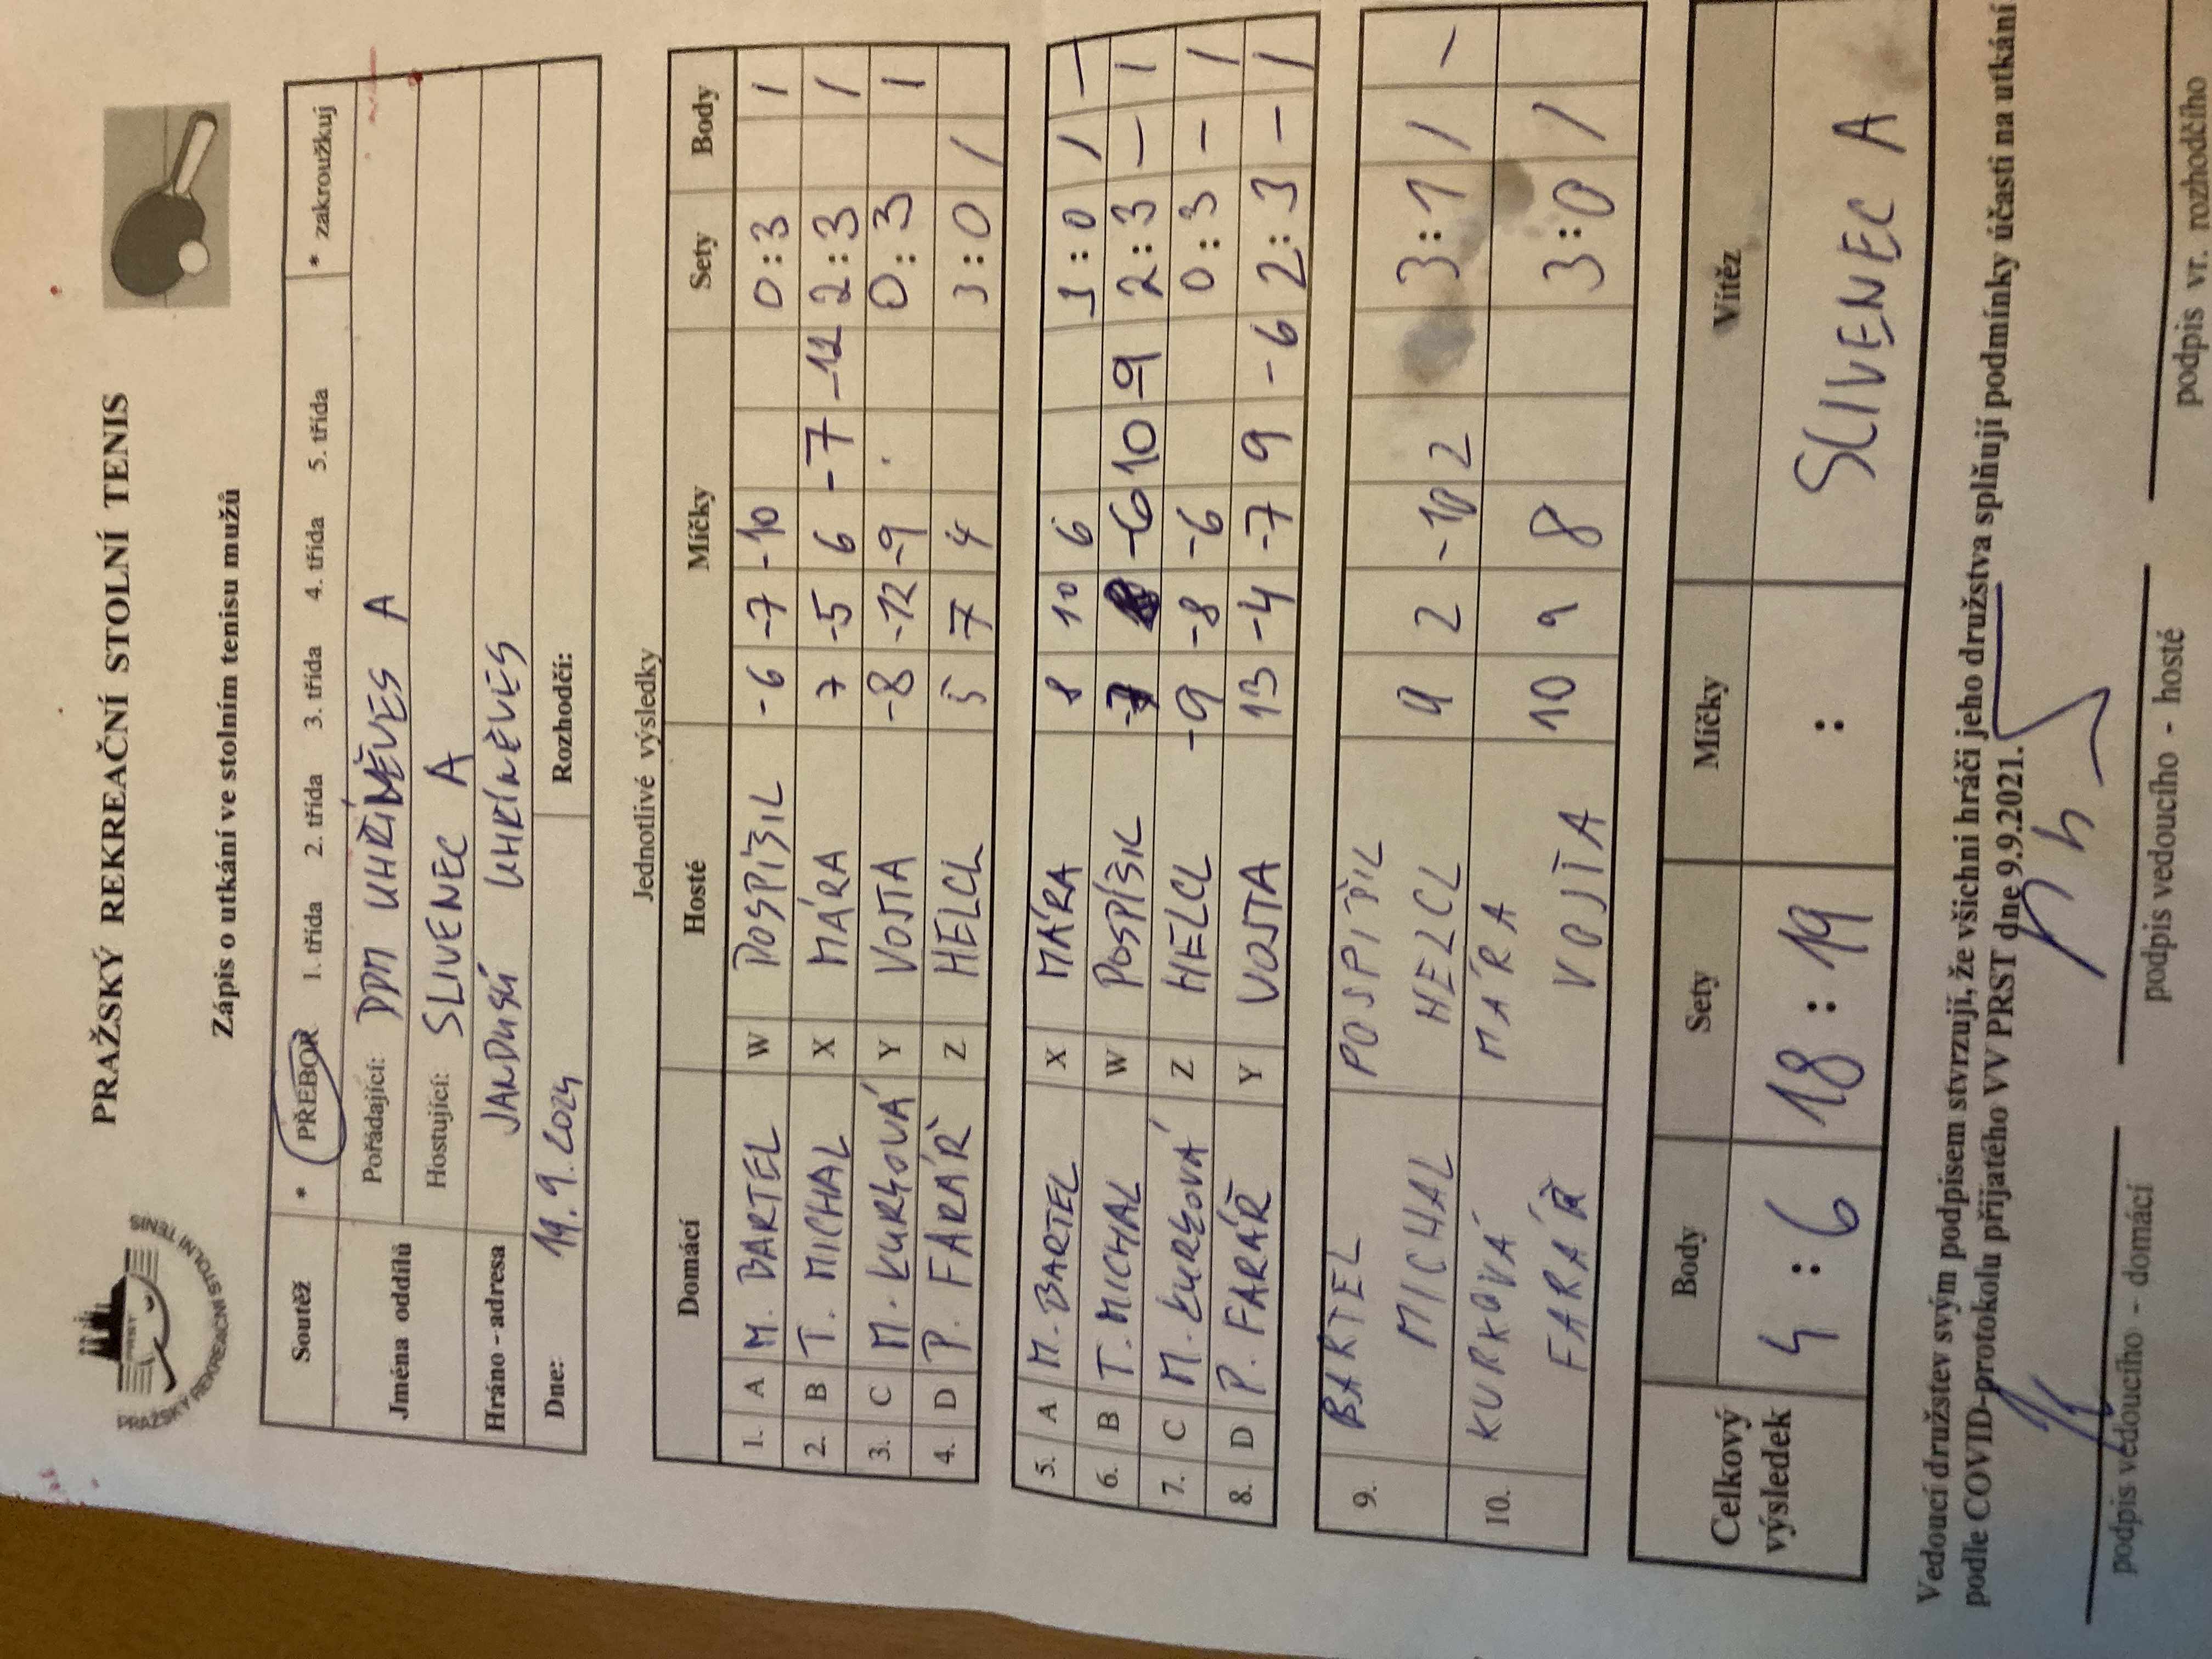 PRAŽSKÝ REKREAČNÍ STOLNÍ TENIS
PRST
PRAŽSKÝ REKREAČNÍ STOLNÍ TENIS
Zápis o utkání ve stolním tenisu mužů
Soutěž * PŘEBOR 1. třída 2. třída 3. třída 4. třída 5. třída * zakroužkuj
Jména oddílů Pořádající: DDM UHŘÍNĚVES A
Hostující: SLIVENEC A
Hráno - adresa JANDUSŮ UHŘÍNĚVES
Dne: 19.9.2024 Rozhodčí:
Jednotlivé výsledky
Domácí Hosté Míčky Sety Body
1. A M. BARTEL W POSPÍŠIL -6 -7 -10 0:3 1
2. B T. MICHAL X MÁRA 7 -5 6 -7 -12 2:3 1
3. C M. KURKOVÁ Y VOJTA -8 -12 -9 0:3 1
4. D P. FARÁŘ Z HELCL 5 7 4 3:0 1
5. A M. BARTEL X MÁRA 8 10 6 3:0 1 -
6. B T. MICHAL W POSPÍŠIL -7 8 -6 10 -9 2:3 - 1
7. C M. KURKOVÁ Z HELCL -9 -8 -6 0:3 - 1
8. D P. FARÁŘ Y VOJTA 13 -4 -7 9 -6 2:3 - 1
9. BARTEL POSPÍŠIL
MICHAL HELCL 9 2 -10 2 3:1 1 -
10. KURKOVÁ MÁRA
FARÁŘ VOJTA 10 9 8 3:0 1
Celkový výsledek Body Sety Míčky Vítěz
4:6 18:19 : SLIVENEC A
Vedoucí družstev svým podpisem stvrzují, že všichni hráči jeho družstva splňují podmínky účasti na utkání
podle COVID-protokolu přijatého VV PRST dne 9.9.2021.
podpis vedoucího - domácí podpis vedoucího - hosté podpis vr. rozhodčího